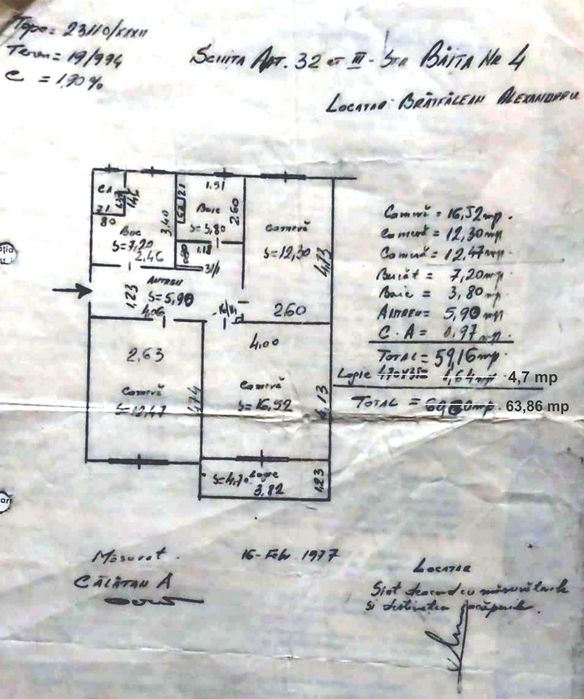 Topo = 23110/XXXII
Teren = 19/994
C = 1,90%
SCHIȚA APT. 32 et III - STR BĂIȚA NR 4
LOCATAR - BRĂTFĂLEAN ALEXANDRU
CĂ
80
3,40
Buc
S=7,20
2,46
1,51
Baie
S=3,80
2,60
1,18
Cameră
S=12,30
4,73
Antreu
S=5,90
4,06
1,23
2,60
2,63
4,00
Cameră
S=12,47
4,74
Cameră
S=16,52
4,13
S=4,70 Logie
3,82
1,23
Cameră = 16,52 mp.
Cameră = 12,30 mp
Cameră = 12,47 mp
Bucăt = 7,20 mp
Baie = 3,80 mp
Antreu = 5,90 mp
C.A = 0,97 mp
TOTAL = 59,16 mp
Logie 4,7 mp
TOTAL = 63,86 mp
Măsurat
CĂLĂTAN A
16-Feb. 1977
LOCATAR
Sînt deacord cu măsurătorile
și destinația încăperilor.